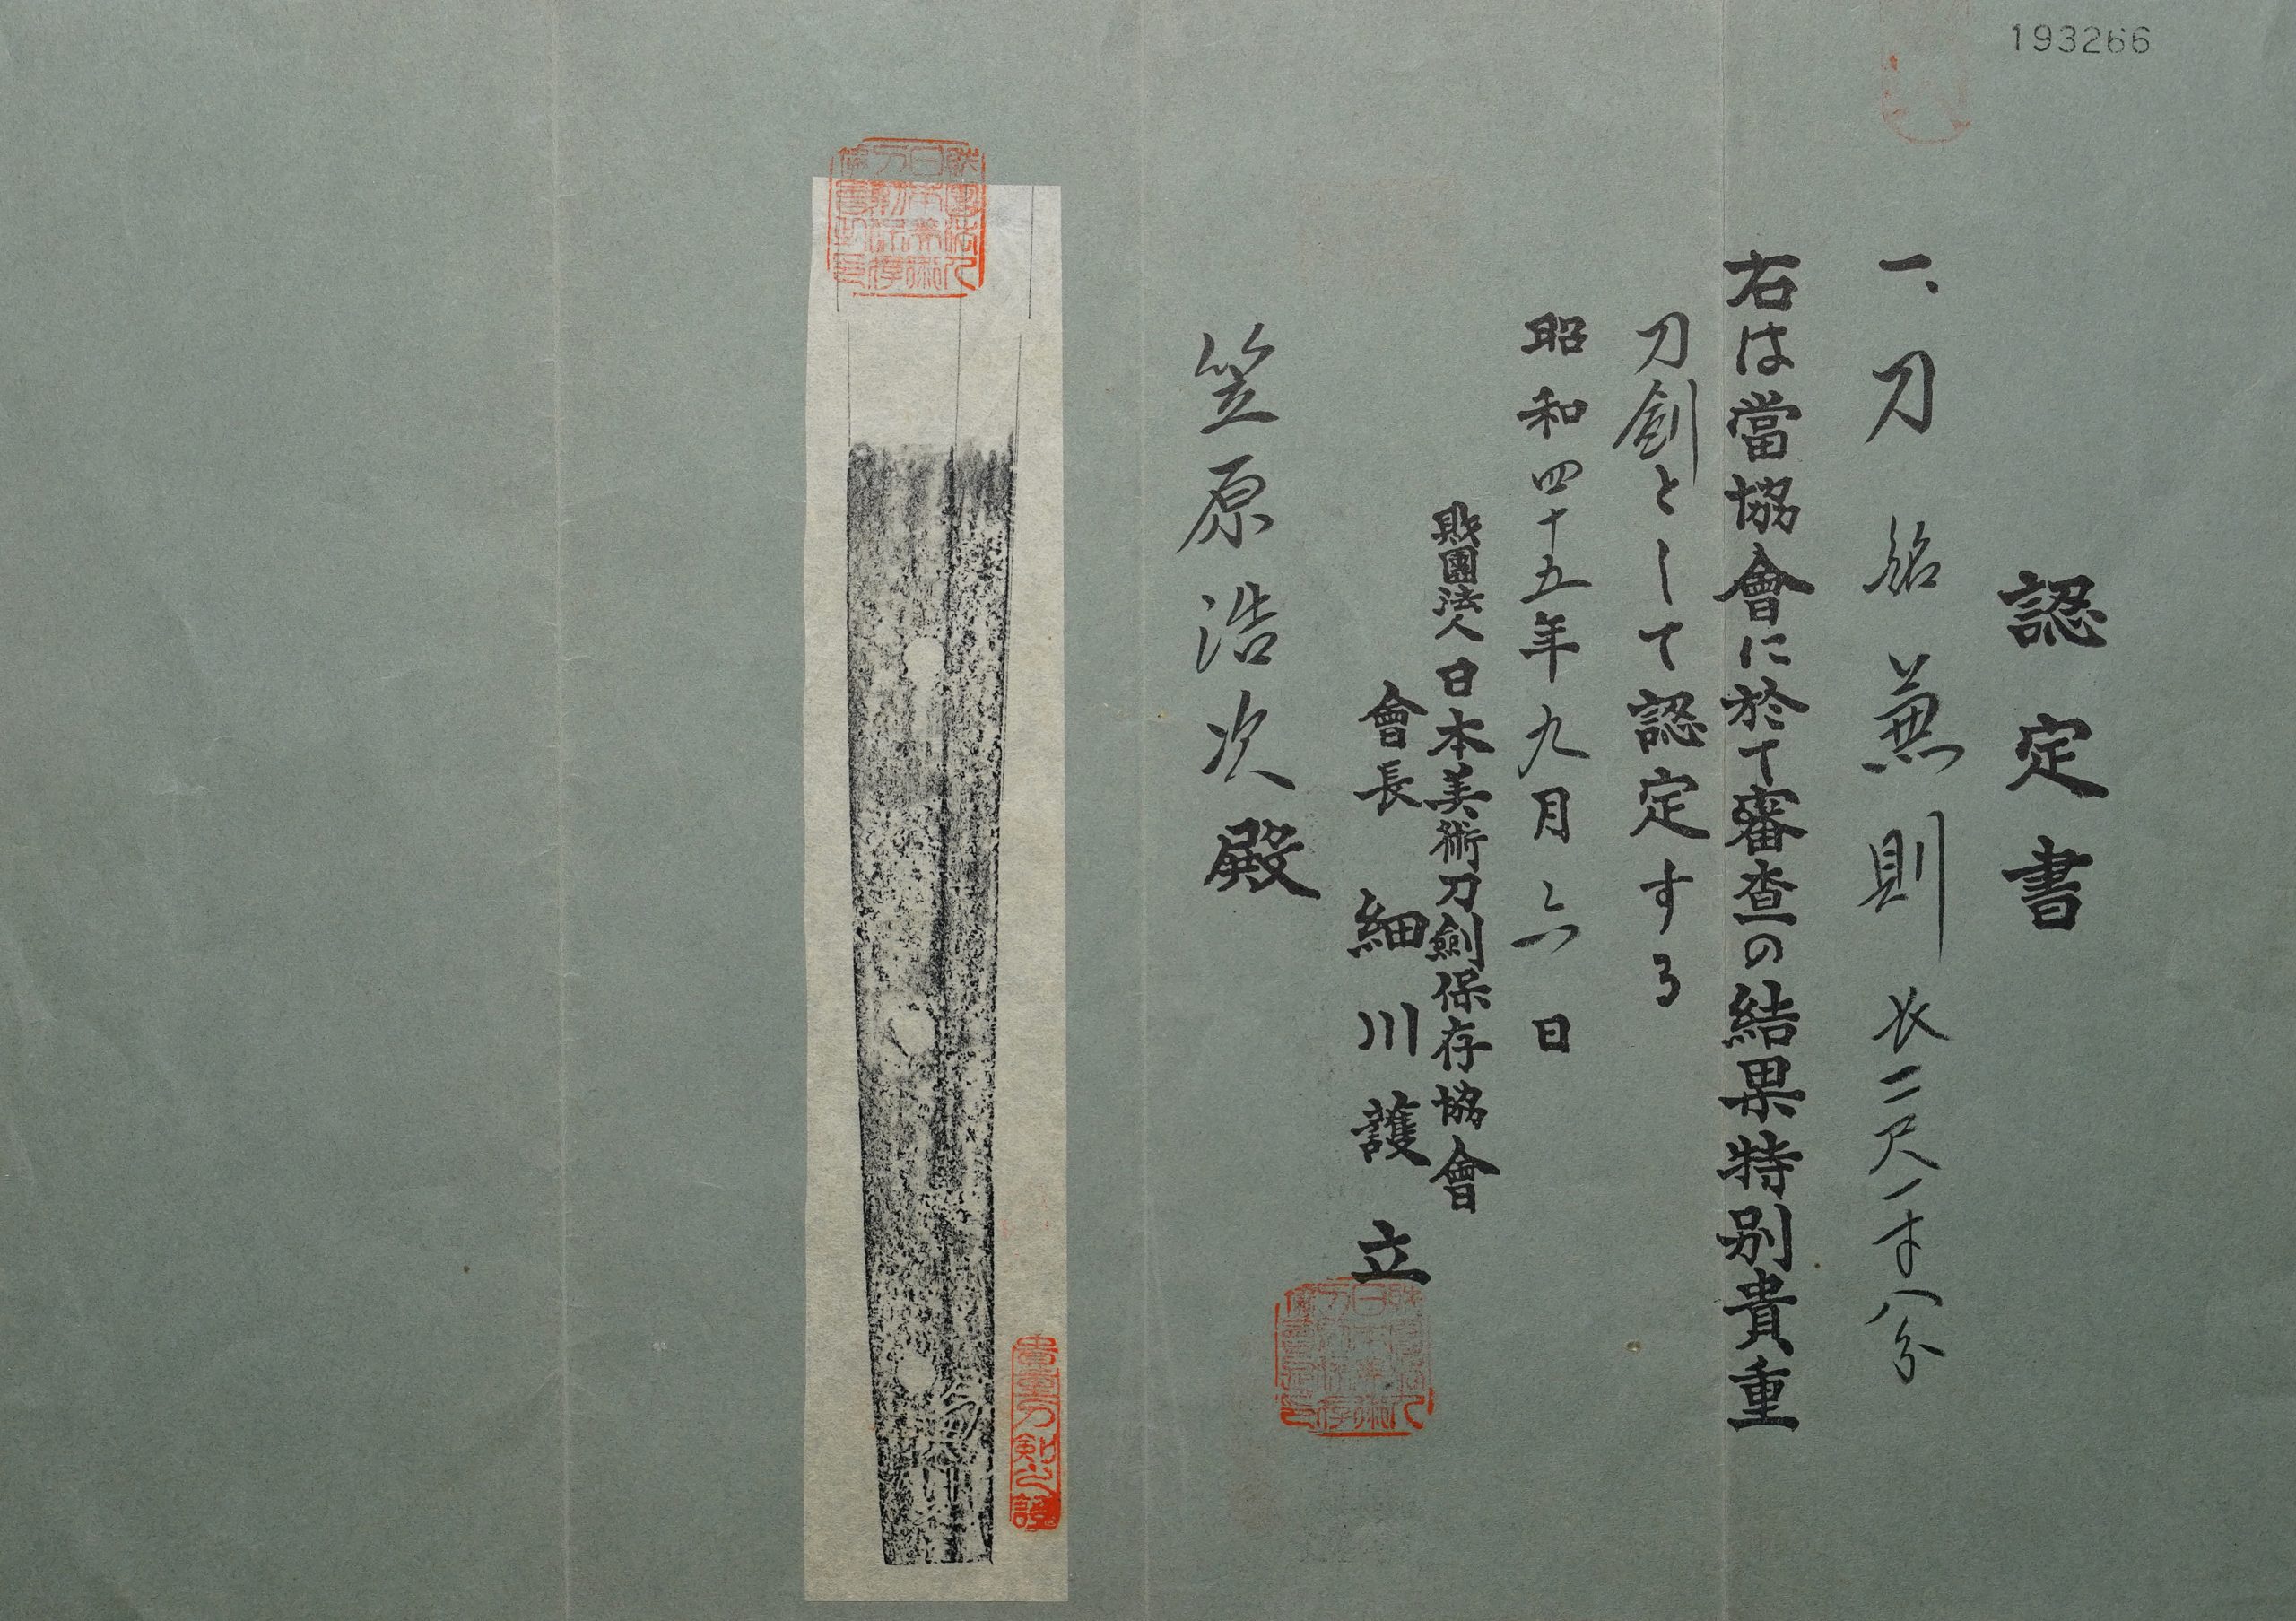 193266
認定書
一、刀 銘 兼則 長二尺一寸八分
右は當協會に於て審査の結果特別貴重
刀劍として認定する
昭和四十五年九月六日
財團法人日本美術刀劍保存協會
會長 細川護立
笠原浩次殿
財團法人日本美術刀劍保存協會之印
貴重刀剣之証